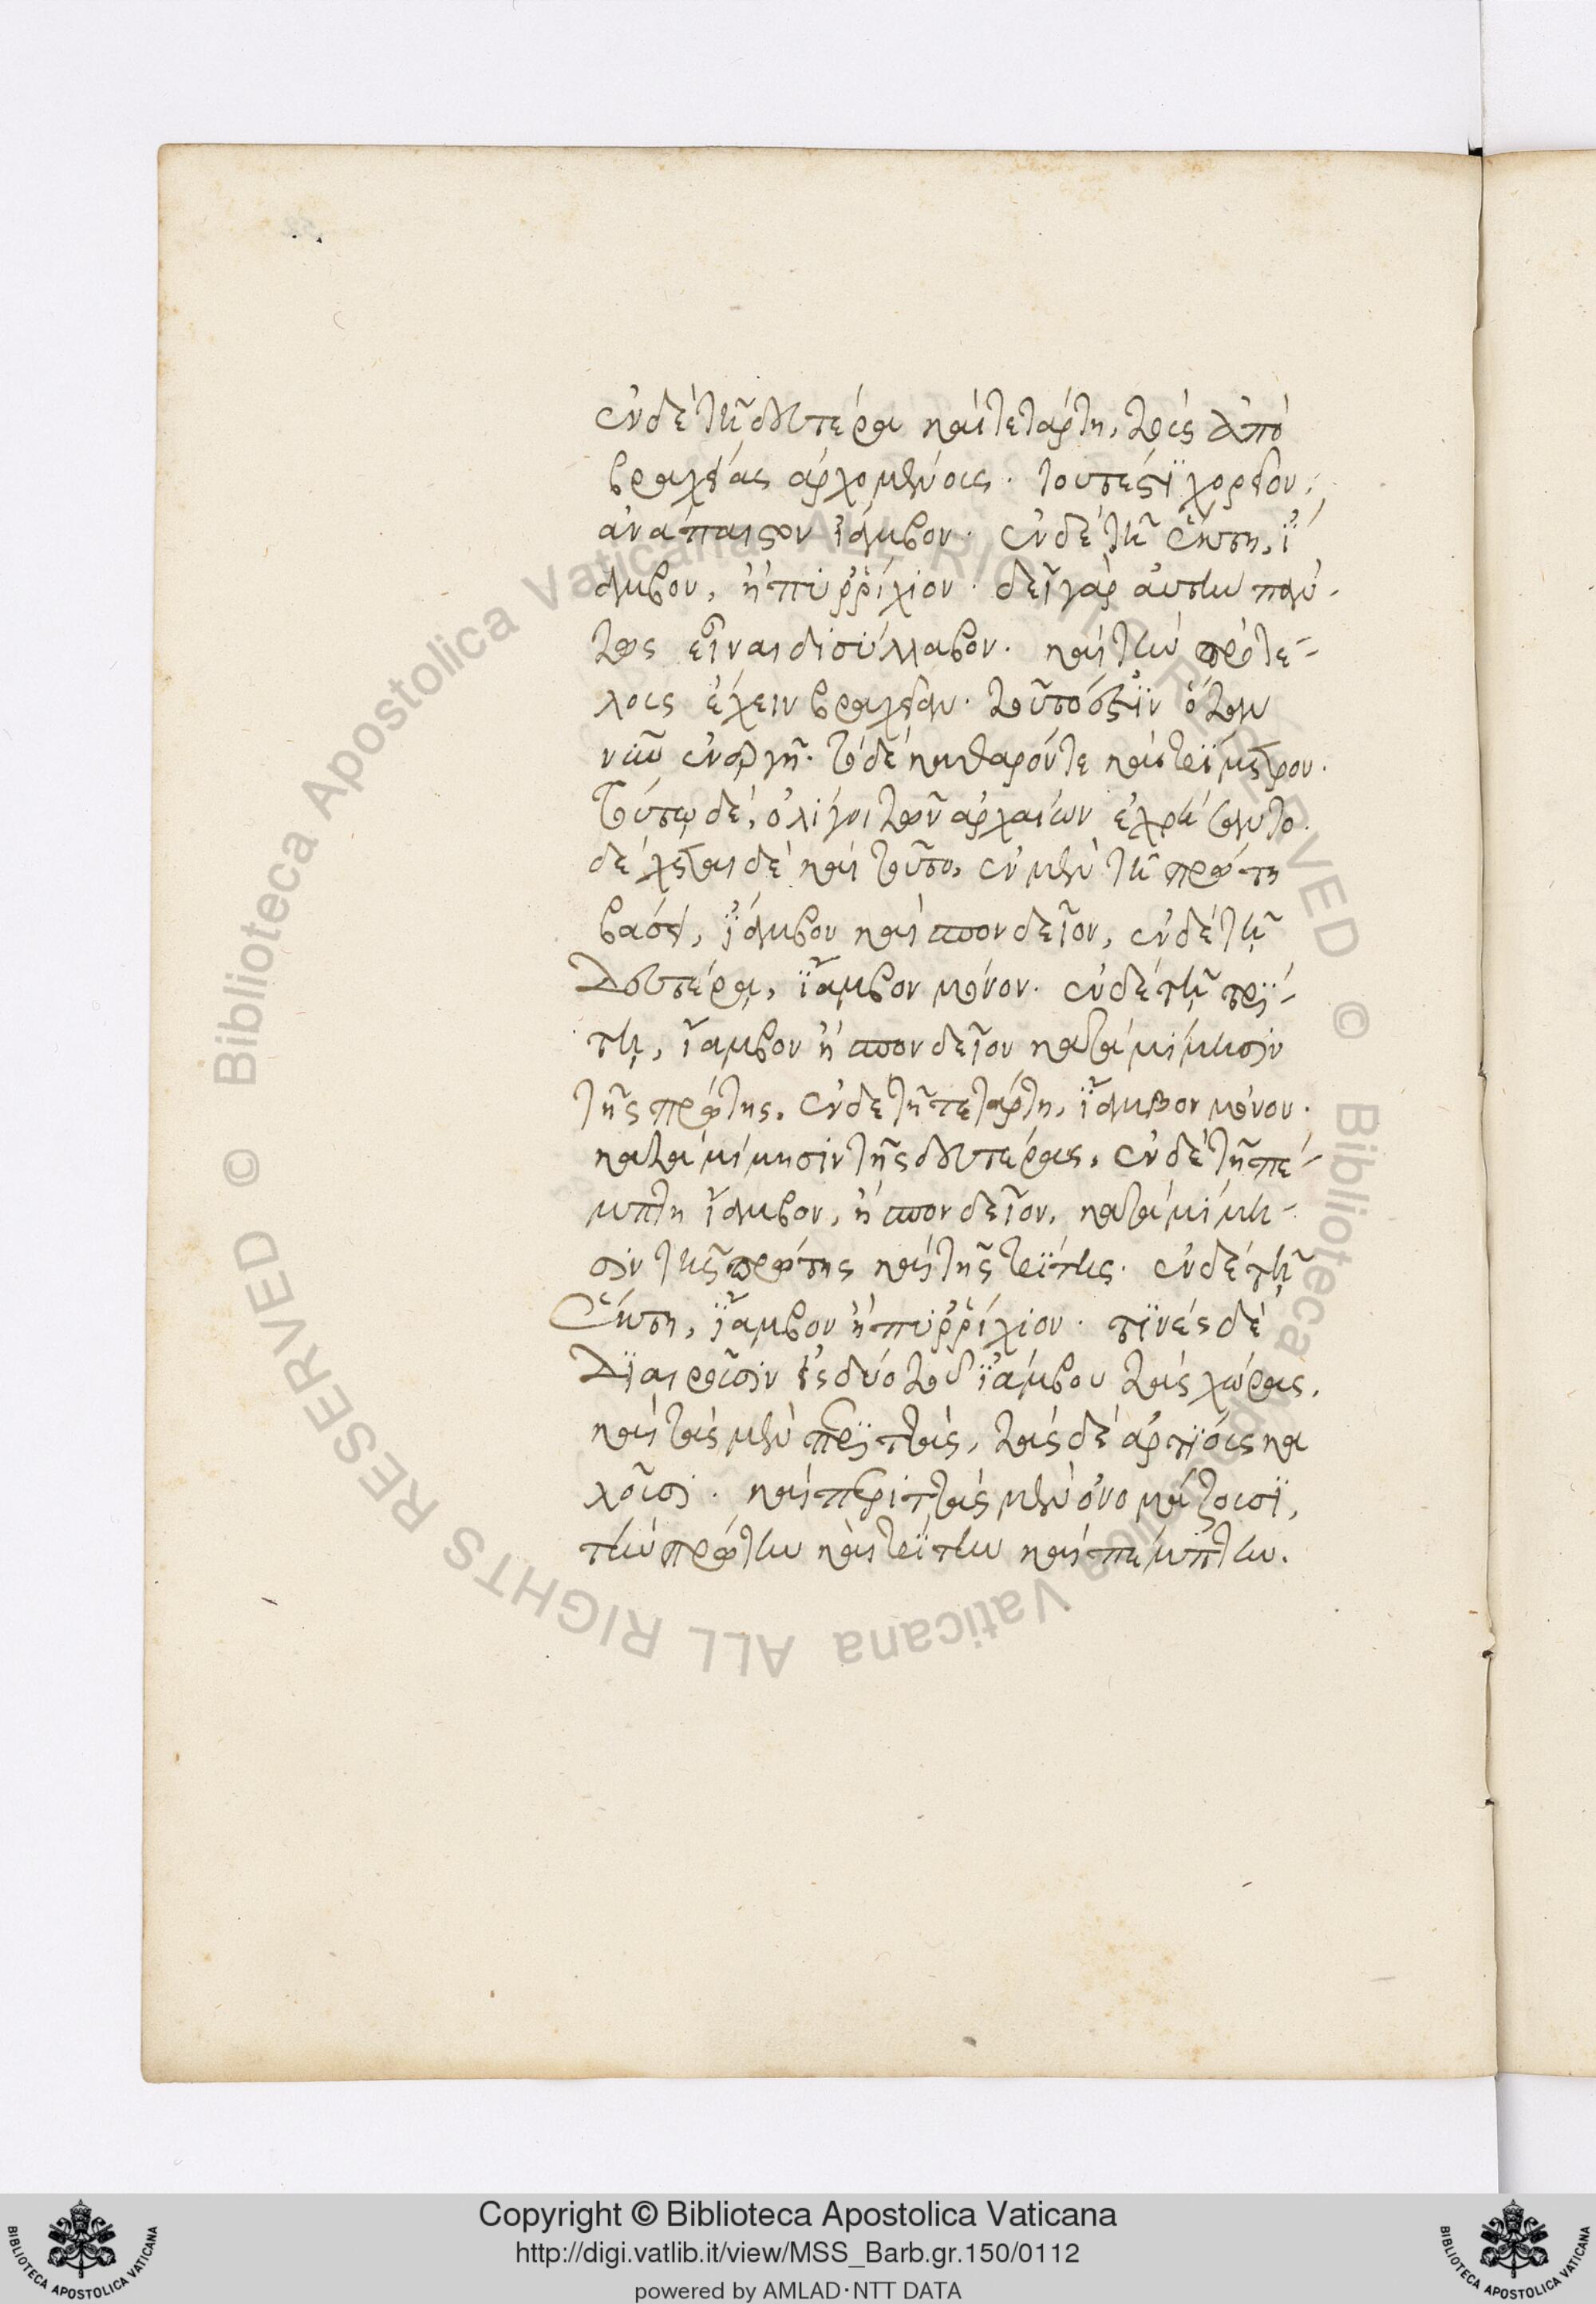 ἐν δὲ τῇ δευτέρα καὶ τετάρτη, τοῖς ἀπὸ
βραχείας ἀρχομένοις. τουτέστι χορεῖον,
ἀνάπαιστον ἴαμβον. ἐν δὲ τῇ ἕκτη, ἴ
αμβον, ἢ πυρρίχιον. δεῖ γὰρ αὐτὴν πάν-
τως εἶναι δισύλλαβον. καὶ τὴν πρὸ τέ-
λους ἔχειν βραχεῖαν. τοῦτό ἐστιν ὅταν
τὸ δὲ καθαρόν τε καὶ τρίμετρον.
τούτω δὲ, ὀλίγοι τῶν ἀρχαίων ἐχρήσαντο.
δέχεται δὲ καὶ τοῦτο, ἐν μὲν τῇ πρώτη
βάσει, ἴαμβον καὶ σπονδεῖον, ἐν δὲ τῇ
Δευτέρα, ἴαμβον μόνον. ἐν δὲ τῇ τρί-
τῃ, ἴαμβον ἢ σπονδεῖον κατὰ μίμησιν
τῆς πρώτης, ἐν δὲ τῆ τετάρτη, ἴαμβον μόνον.
κατὰ μίμησιν τῆς δευτέρας, ἐν δὲ τῆ πέ-
μπτη ἴαμβον, ἢ σπονδεῖον, κατὰ μίμη-
σιν τῆς πρώτης καὶ τῆς τρίτης. ἐν δὲ τῇ
ἕκτη, ἴαμβον ἢ πυρρίχιον. τινὲς δὲ
Διαιροῦσιν εἰς δύο τοῦ ἰάμβου τὰς χώρας,
καὶ τὰς μὲν περιττὰς, τὰς δὲ ἀρτίους κα
λοῦσι. καὶ περιττὰς μὲν ὀνομάζουσι,
τὴν πρώτην καὶ τρίτην καὶ πέμπτην.
Copyright © Biblioteca Apostolica Vaticana
http://digi.vatlib.it/view/MSS_Barb.gr.150/0112
powered by AMLAD·NTT DATA